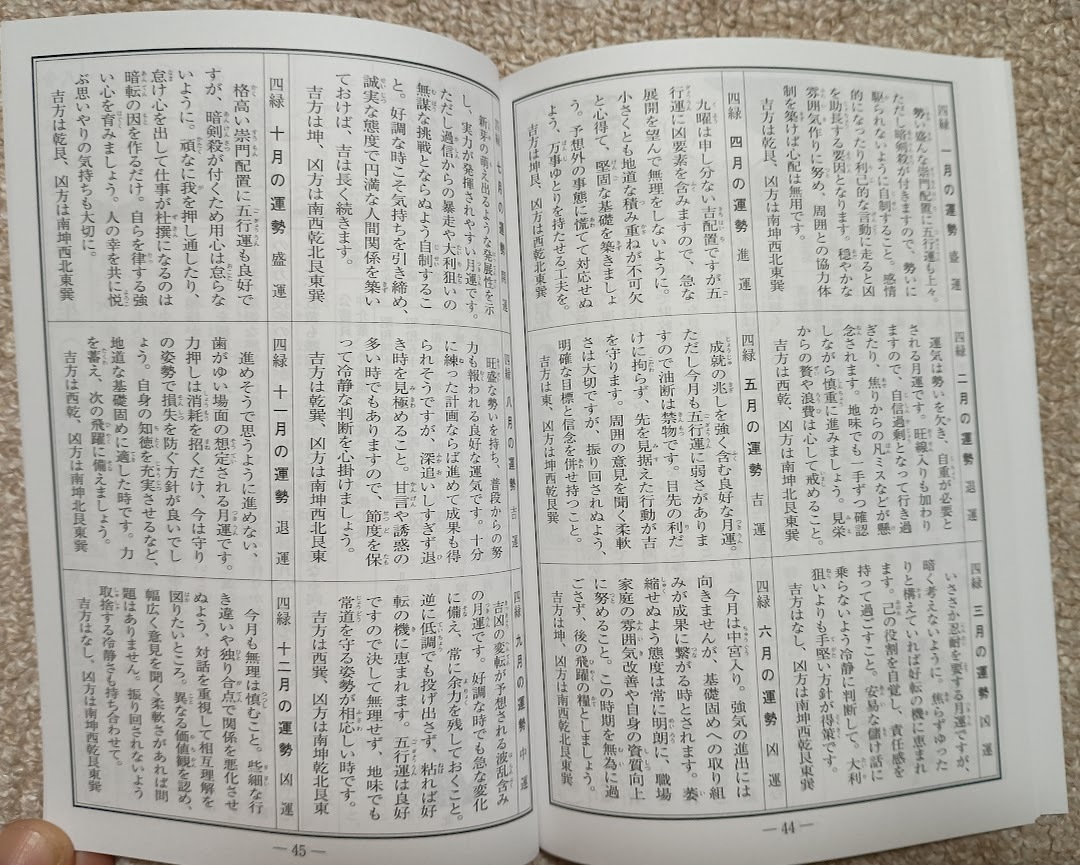 四緑 一月の運勢 盛運
勢い盛んな崇門配置に五行運も上々。
ただし暗剣殺が付きますので、勢いに
駆られないように自制すること。感情
的になったり利己的な言動に走ると凶
を助長する要因となります。穏やかな
雰囲気作りに努め、周囲との協力体
制を築けば心配は無用です。
吉方は乾艮、凶方は南坤西北東巽
四緑 二月の運勢 退運
運気は勢いを欠き、自重が必要と
される月運です。旺線入りも加わり
ますので、自信過剰となって行き過
ぎたり、焦りからの凡ミスなどが懸
念されます。地味でも一手ずつ確認
しながら慎重に進みましょう。見栄
からの贅や浪費は心して戒めること。
吉方は西乾、凶方は南坤北艮東巽
四緑 三月の運勢 凶運
いささか忍耐を要する月運ですが、
暗く考えないように。焦らずゆった
りと構えていれば好転の機に恵まれ
ます。己の役割を自覚し、責任感を
持って過ごすこと。安易な儲け話に
乗らないよう冷静に判断して。大利
狙いよりも手堅い方針が得策です。
吉方はなし、凶方は南坤西乾北艮東巽
四緑 四月の運勢 進運
九曜は申し分ない吉配置ですが五
行運に凶要素を含みますので、急な
展開を望んで無理をしないように。
小さくとも地道な積み重ねが不可欠
と心得て、堅固な基礎を築きましょ
う。予想外の事態に慌てて対応せぬ
よう、万事ゆとりを持たせる工夫を。
吉方は坤艮、凶方は西乾北東巽
四緑 五月の運勢 吉運
成就の兆しを強く含む良好な月運。
ただし今月も五行運に弱さがありま
すので油断は禁物です。目先の利だ
けに拘らず、先を見据えた行動が吉
を守ります。周囲の意見を聞く柔軟
さは大切ですが、振り回されぬよう、
明確な目標と信念を併せ持つこと。
吉方は東、凶方は南坤西乾北艮巽
四緑 六月の運勢 凶運
今月は中宮入り。強気の進出には
向きませんが、基礎固めへの取り組
みが成果に繋がる時とされます。萎
縮せぬよう態度は常に明朗に、職場
家庭の雰囲気改善や自身の資質向上
に努めること。この時期を無為に過
ごさず、後の飛躍の糧としましょう。
吉方は坤、凶方は南西乾北艮東巽
—44—
四緑 七月の運勢 開運
新芽の萌え出るような発展性を示
し、実力が発揮されやすい月運です。
ただし過信からの暴走や大利狙いの
無謀な挑戦とならぬよう自制するこ
と。好調な時こそ気持ちを引き締め、
誠実な態度で円満な人間関係を築い
ておけば、吉は長く続きます。
吉方は坤、凶方は南西乾北艮東巽
四緑 八月の運勢 吉運
旺盛な勢いを持ち、普段からの努
力も報われる良好な運気です。十分
に練った計画ならば進めて成果も得
られそうですが、深追いしすぎず退
き時を見極めること。甘言や誘惑の
多い時でもありますので、節度を保
って冷静な判断を心掛けましょう。
吉方は乾巽、凶方は南坤西北艮東
四緑 九月の運勢 中運
吉凶の変転が予想される波乱含み
の月運です。好調な時でも急な変化
に備え、常に余力を残しておくこと。
逆に低調でも投げ出さず、粘れば好
転の機に恵まれます。五行運は良好
ですので決して無理せず、地味でも
常道を守る姿勢が相応しい時です。
吉方は西巽、凶方は南坤乾北艮東
四緑 十月の運勢 盛運
格高い崇門配置に五行運も良好で
すが、暗剣殺が付くため用心は怠らな
いように。頑なに我を押し通したり、
怠け心を出して仕事が杜撰になるのは
暗転の因を作るだけ。自らを律する強
い心を育みましょう。人の幸を共に悦
ぶ思いやりの気持ちも大切に。
吉方は乾艮、凶方は南坤西北東巽
四緑 十一月の運勢 退運
進めそうで思うように進めない、
歯がゆい場面の想定される月運です。
力押しは消耗を招くだけ、今は守り
の姿勢で損失を防ぐ方針が良いでし
ょう。自身の知徳を充実させるなど、
地道な基礎固めに適した時です。力
を蓄え、次の飛躍に備えましょう。
吉方は西乾、凶方は南坤北艮東巽
四緑 十二月の運勢 凶運
今月も無理は慎むこと。些細な行
き違いや独り合点で関係を悪化させ
ぬよう、対話を重視して相互理解を
図りたいところ。異なる価値観を認め、
幅広く意見を聞く柔軟さがあれば問
題はありません。振り回されないよう
取捨する冷静さも持ち合わせて。
吉方はなし、凶方は南坤西乾北艮東巽
—45—